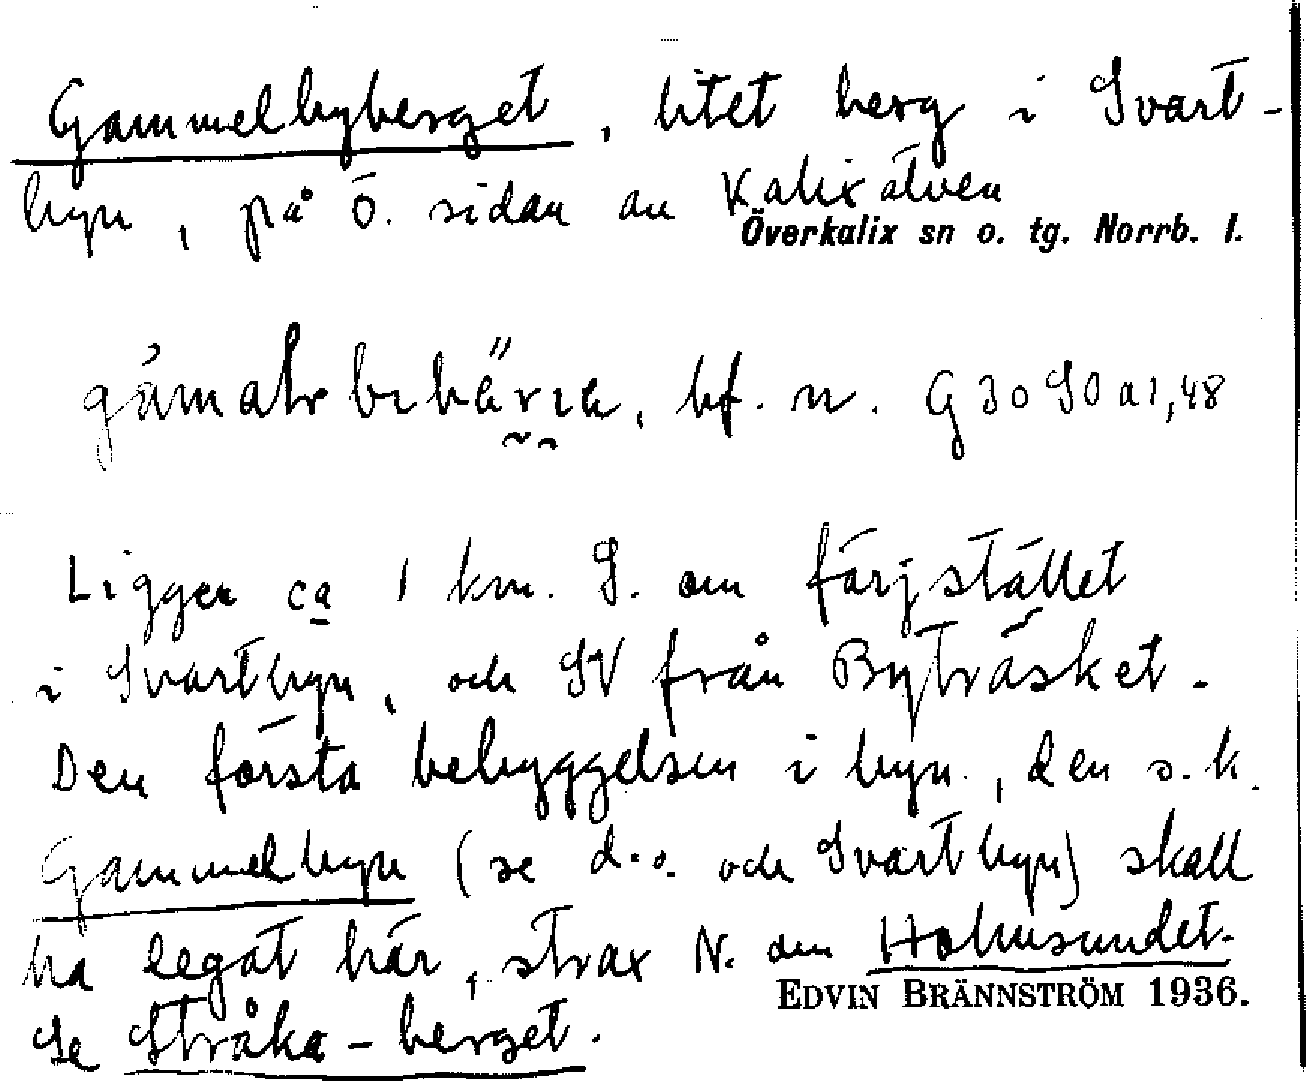 Gammelbyberget, litet berg i Svart-
byn, på ö. sidan av Kalix älven
Överkalix sn o. tg. Norrb. l.
bf. n. G 30 S0 a1,48
Ligger ca 1 km. S. om färjstället
i Svartbyn, och SV från Byträsket.
Den första bebyggelsen i byn, den s.k.
Gammelbyn (se d.o. och Svartbyn) skall
ha legat här, strax N. om Holmsundet.
EDVIN BRÄNNSTRÖM 1936.
Se Stråka-berget.